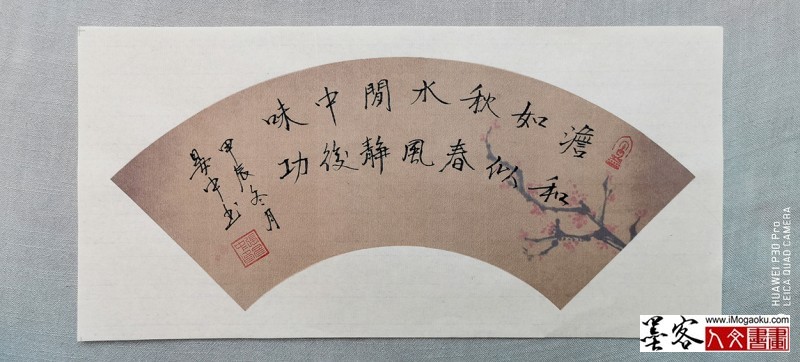 澹如秋水閒中味
和似春風静後功
甲辰冬月
中书
HUAWEI P30 Pro
LEICA QUAD CAMERA
www.iMogaoku.com
墨客人文書畫